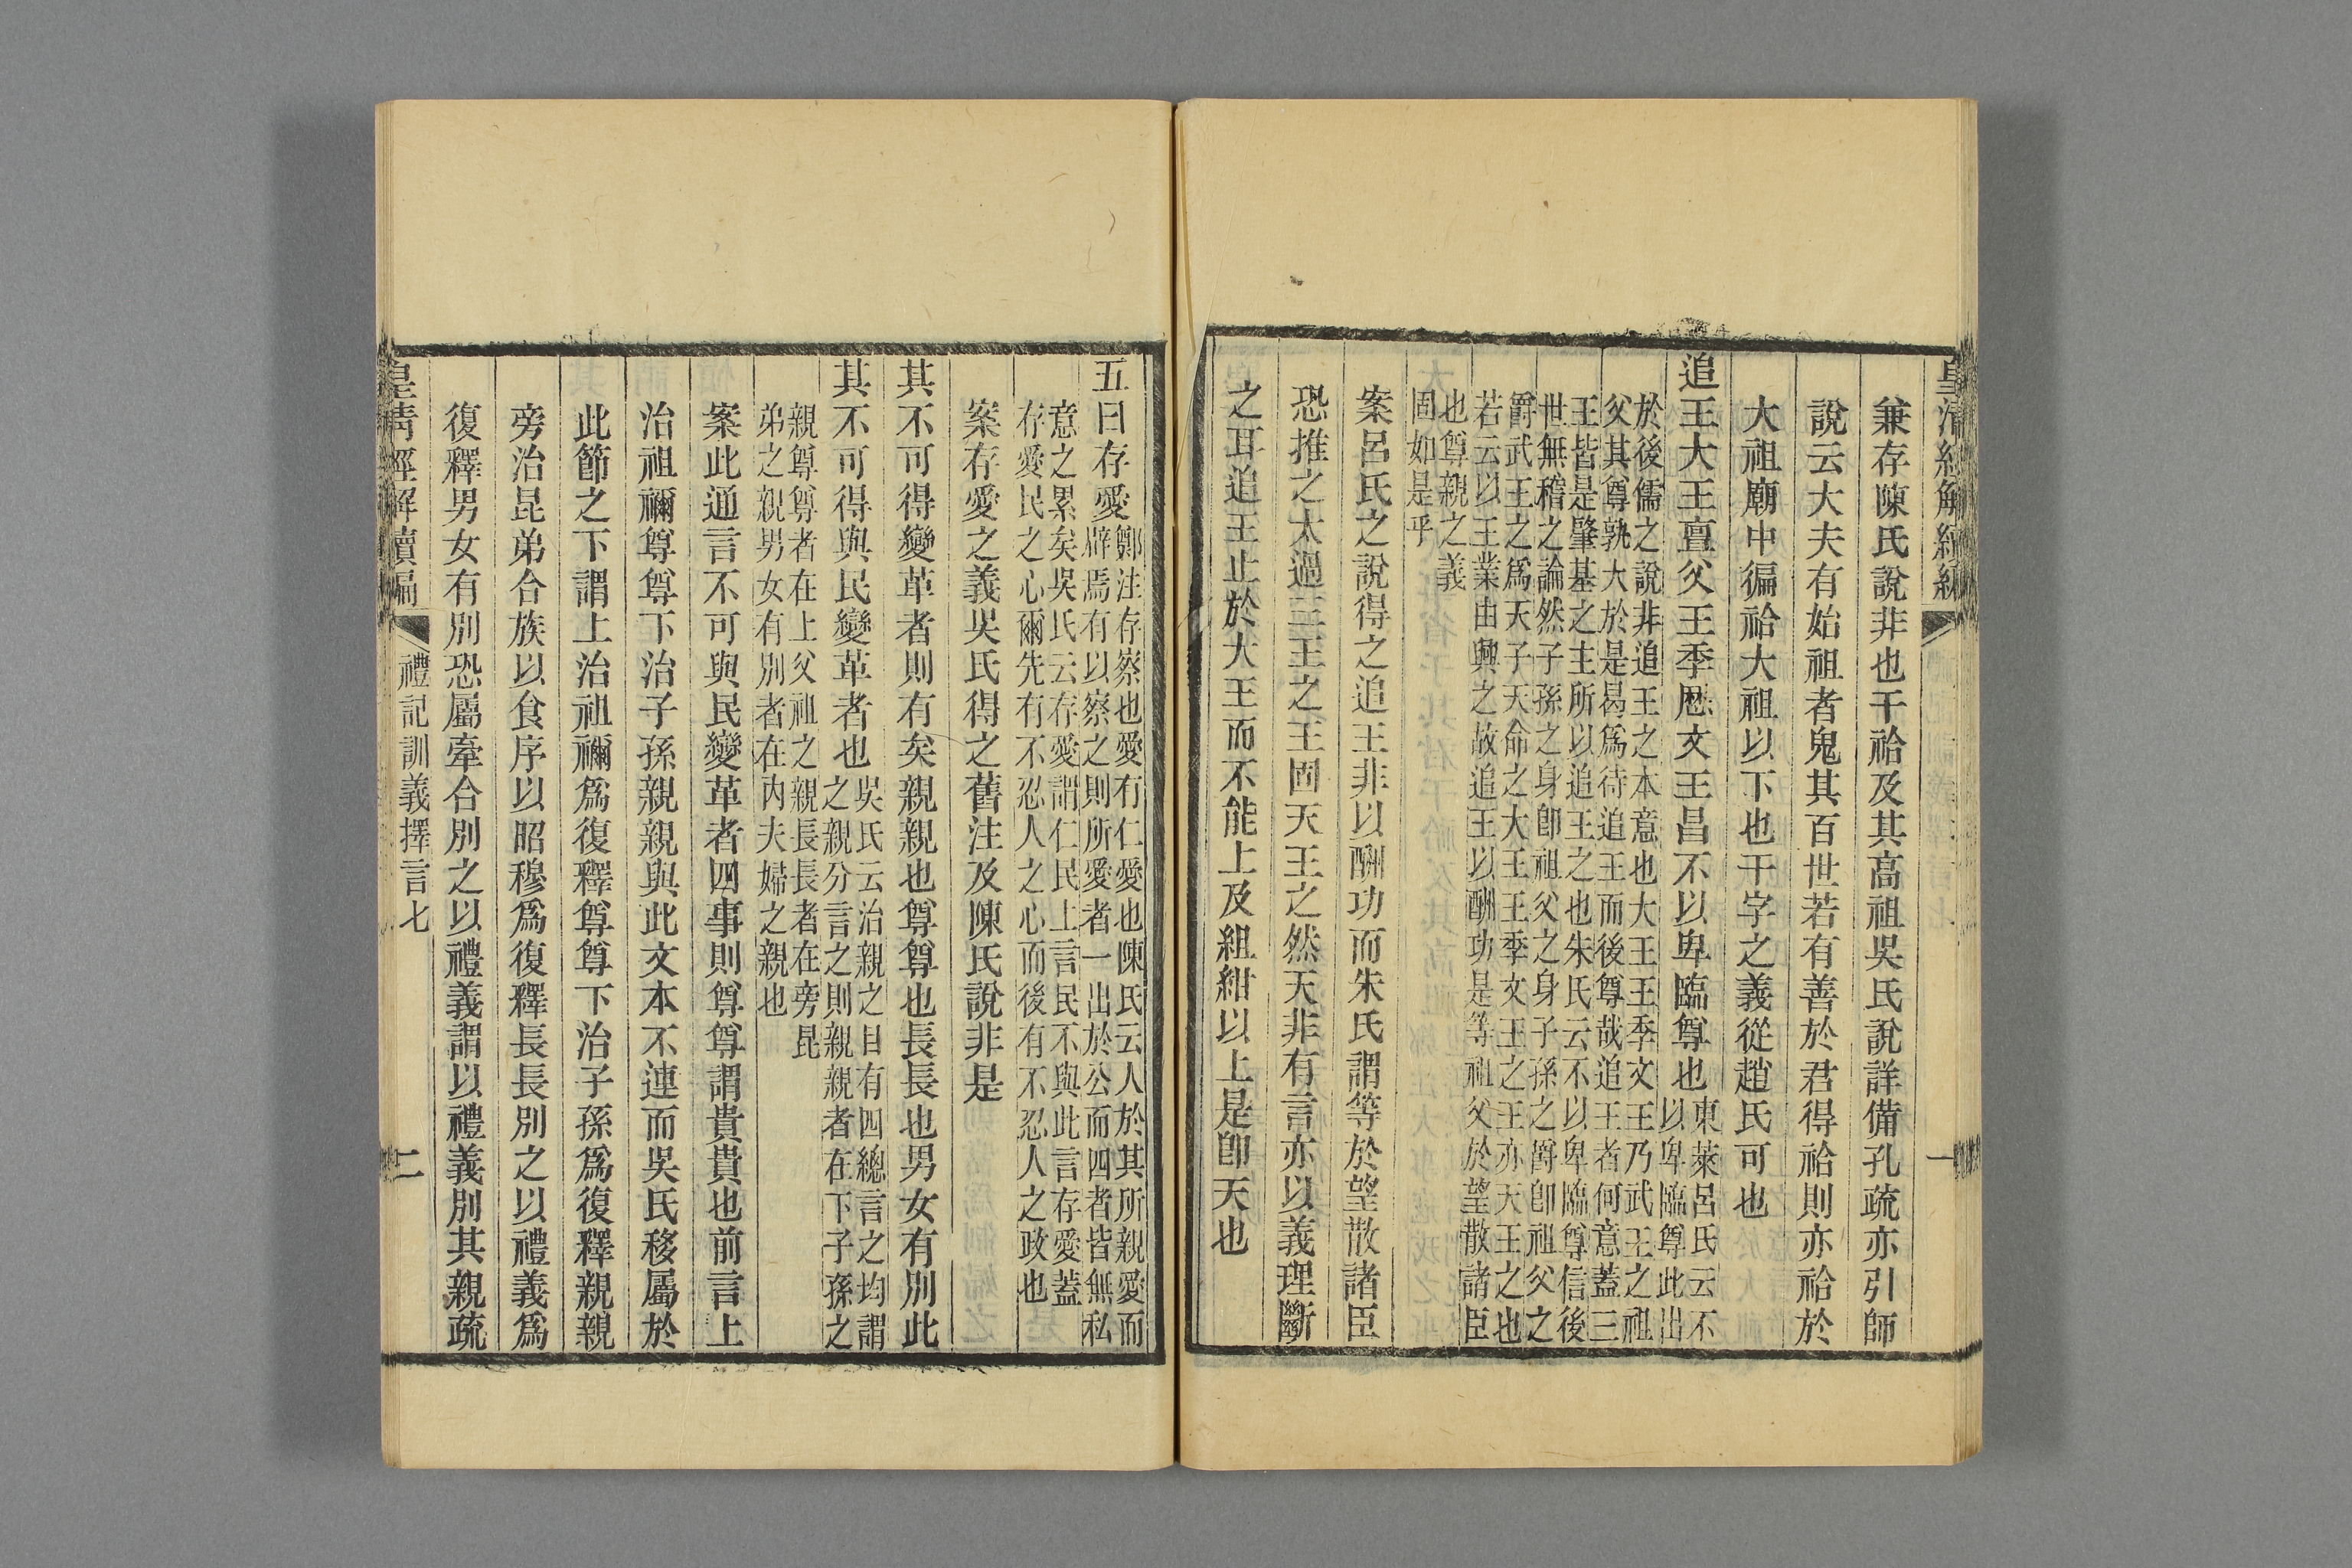 皇清經解續編 一
兼存陳氏說非也干祫及其高祖吳氏說詳備孔疏亦引師
說云大夫有始祖者鬼其百世若有善於君得祫則亦祫於
大祖廟中徧祫大祖以下也干字之義從趙氏可也
追王大王亶父王季歷文王昌不以卑臨尊也
東萊呂氏云不
以卑臨尊此出
於後儒之說非追王之本意也大王王季文王乃武王之祖
父其尊孰大於是曷爲待追王而後尊哉追王者何意蓋三
王皆是肇基之主所以追王之也朱氏云不以卑臨尊信後
世無稽之論然子孫之身卽祖父之身子孫之爵卽祖父之
爵武王之爲天子天命之大王王季文王之王亦天王之也
若云以王業由興之故追王以酬功是等祖父於望散諸臣
也尊親之義
固如是乎
案呂氏之說得之追王非以酬功而朱氏謂等於望散諸臣
恐推之太過三王之王固天王之然天非有言亦以義理斷
之耳追王止於大王而不能上及組紺以上是卽天也
五曰存愛
鄭注存察也愛有仁愛也陳氏云人於其所親愛而
辟焉有以察之則所愛者一出於公而四者皆無私
意之累矣吳氏云存愛謂仁民上言民不與此言存愛蓋
存愛民之心爾先有不忍人之心而後有不忍人之政也
案存愛之義吳氏得之舊注及陳氏說非是
其不可得變革者則有矣親親也尊尊也長長也男女有別此
其不可得與民變革者也
吳氏云治親之目有四總言之均謂
之親分言之則親親者在下子孫之
親尊尊者在上父祖之親長長者在旁昆
弟之親男女有別者在內夫婦之親也
案此通言不可與民變革者四事則尊尊謂貴貴也前言上
治祖禰尊尊下治子孫親親與此文本不連而吳氏移屬於
此節之下謂上治祖禰爲復釋尊尊下治子孫爲復釋親親
旁治昆弟合族以食序以昭穆爲復釋長長別之以禮義爲
復釋男女有別恐屬牽合別之以禮義謂以禮義別其親疏
皇清經解續編 禮記訓義擇言七 二